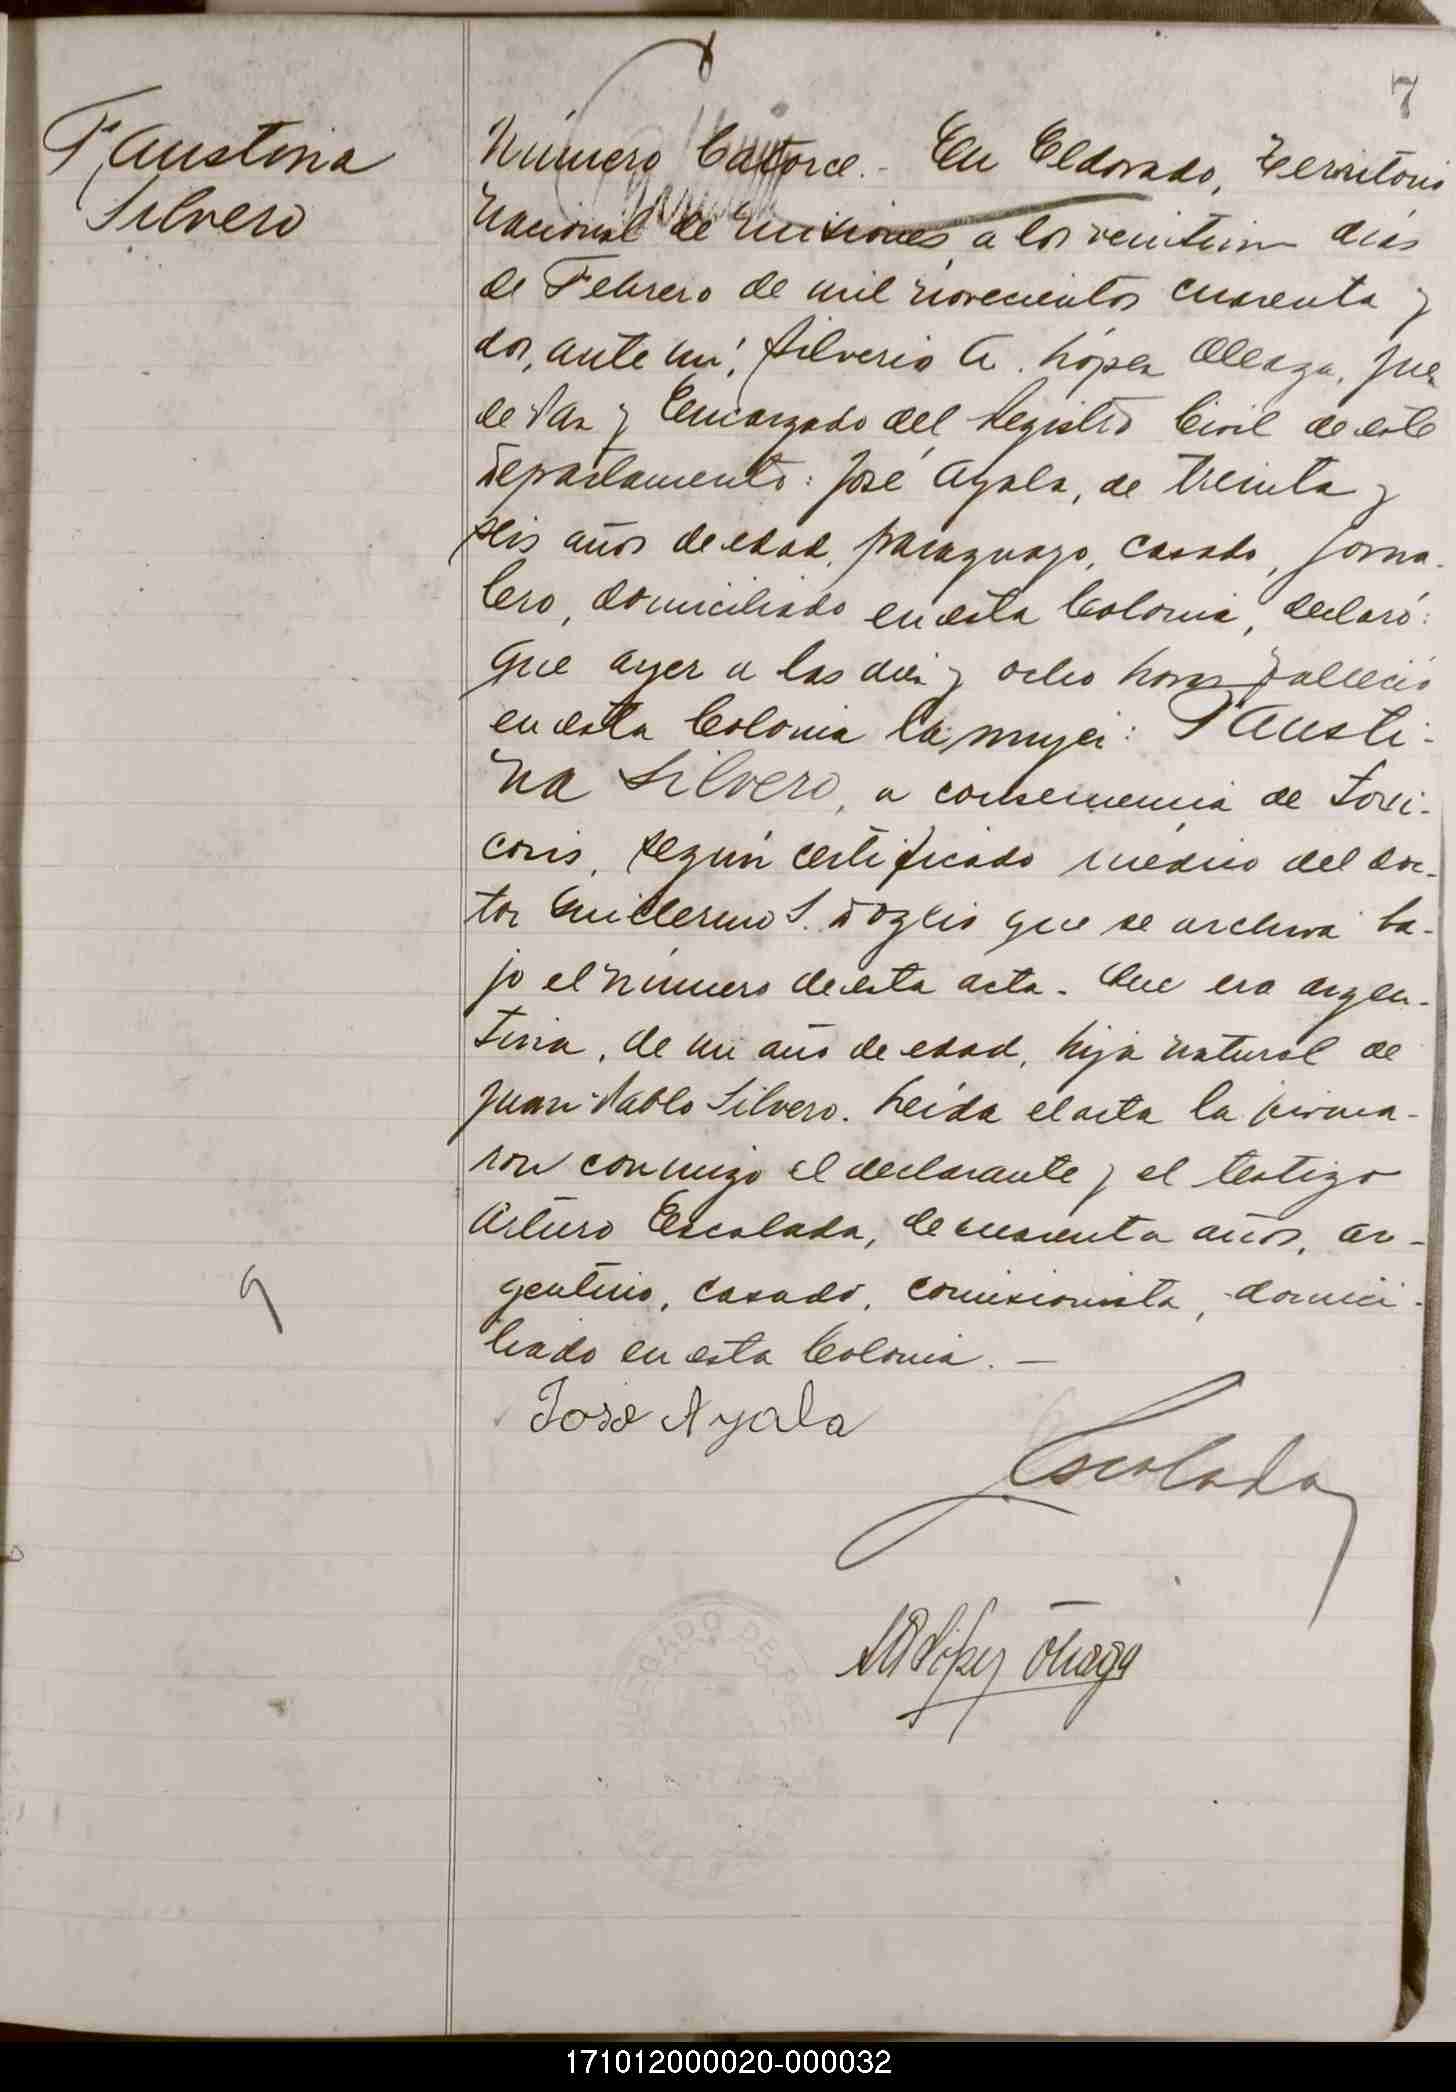 7
Faustina
Silvero
Número Catorce.- En Eldorado, Territorio
Nacional de Misiones, a los veintiun dias
de Febrero de mil novecientos cuarenta y
dos, ante mi, Silverio A. López Oleaga, Juez
de Paz y Encargado del Registro Civil de este
Departamento: José Ayala, de treinta y
seis años de edad, paraguayo, casado, jorna-
lero, domiciliado en esta Colonia, declaró:
Que ayer a las diez y ocho horas falleció
en esta Colonia la mujer: Fausti-
na Silvero, a consecuencia de Toxi-
cosis, según certificado médico del doc-
tor Guillermo S. que se archiva ba-
jo el número de esta acta.- Que era argen-
tina, de un año de edad, hija natural de
Juan Pablo Silvero. Leida el acta la firma-
ron conmigo el declarante y el testigo
Arturo Escalada, de cuarenta años, ar-
gentino, casado, comisionista, domici-
liado en esta Colonia.-
José Ayala
Escalada
López Oleaga
JUZGADO DE PAZ
171012000020-000032